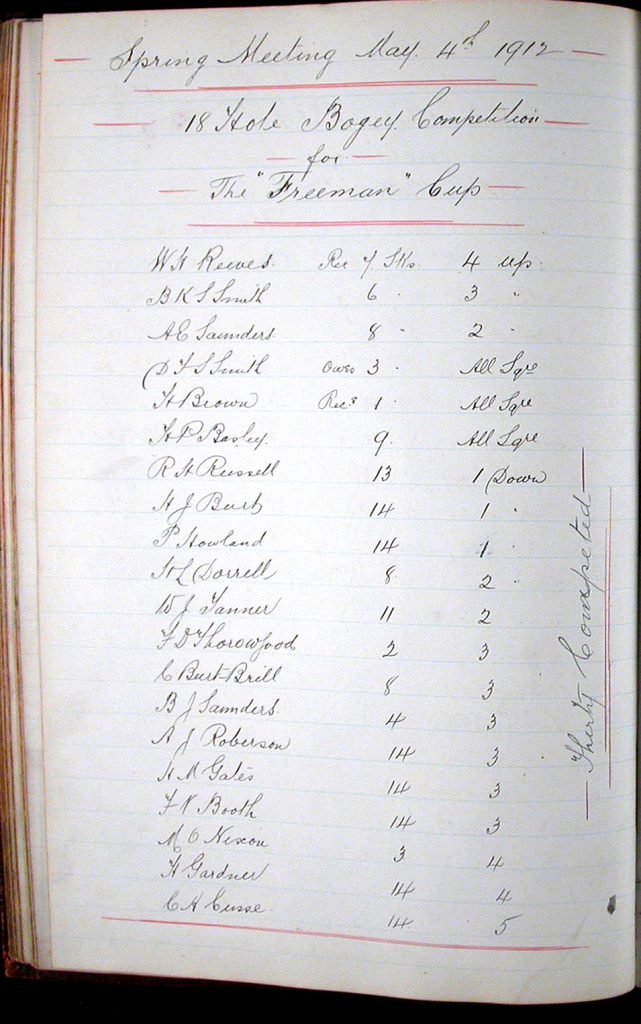 Spring Meeting May. 4th 1912
18 Hole Bogey Competition
for
The "Freeman" Cup
W H Reeves. Rec 7 Sks 4 up.
B K S Smith 6 " 3 "
A E Saunders 8 " 2 "
D F S Smith Owes 3 " All Sqre
H Brown Recs 1 " All Sqre
H P Basley. 9. All Sqre
R H Russell 13 1 Down
H J Burt 14 1 "
P Howland 14 1 "
H L Dorrell 8 2 "
W J Tanner 11 2
F D Thorowgood 2 3
C Burt-Brill 8 3
B J Saunders. 4 3
A J Roberson 14 3
H M Gates 14 3
F N Booth 14 3
M O Nixon 3 4
H Gardner 14 4
C H Cusse 14 5
Thirty Competed